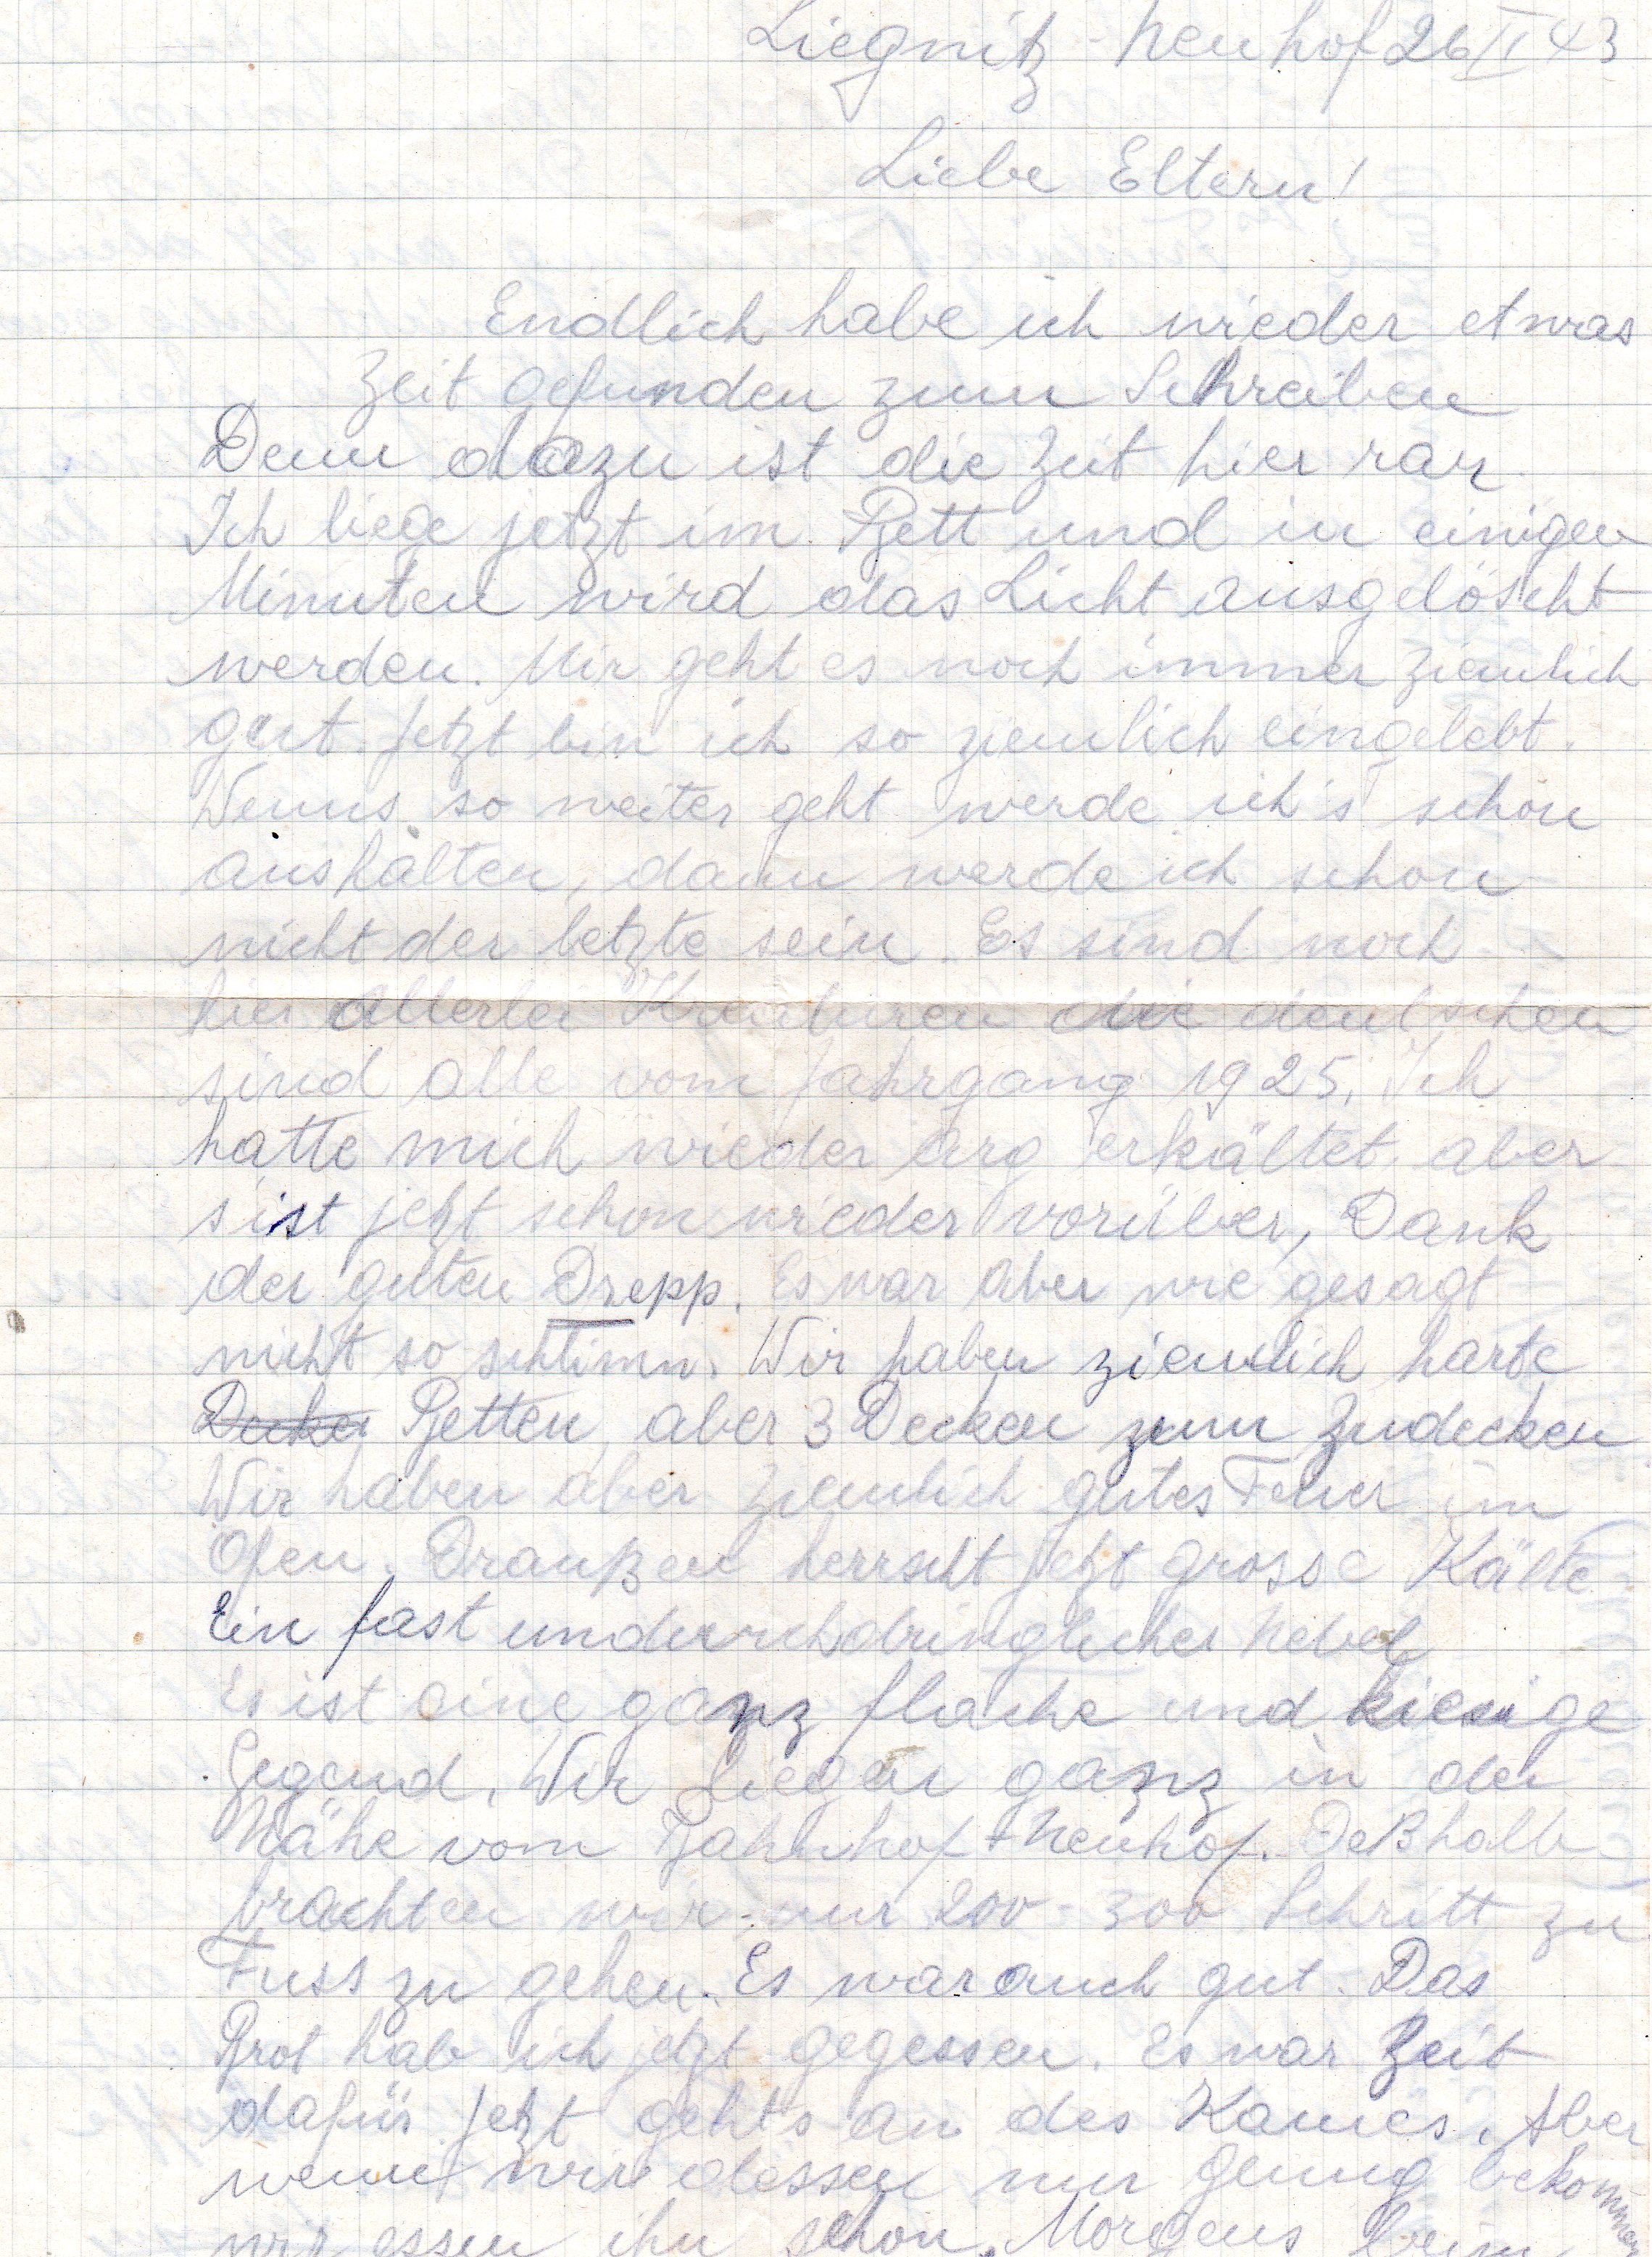 Liegnitz-Neuhof 26 II 43
Liebe Eltern!
Endlich habe ich wieder etwas
Zeit gefunden zum Schreiben
Denn dazu ist die Zeit hier rar.
Ich liege jetzt im Bett und in einigen
Minuten wird das Licht ausgelöscht
werden. Mir geht es noch immer ziemlich
gut. Jetzt bin ich so ziemlich eingelebt.
Wenns so weiter geht werde ich's schon
aushalten, dann werde ich schon
nicht der letzte sein. Es sind noch
hier allerlei Kreaturen die deutschen
sind alle vom Jahrgang 1925. Ich
hatte mich wieder arg erkältet aber
s ist jetzt schon wieder vorüber, Dank
der guten Drepp. Es war aber wie gesagt
nicht so schlimm. Wir haben ziemlich harte
Betten, aber 3 Decken zum Zudecken
Wir haben aber ziemlich gutes Feuer im
Ofen. Draußen herrscht jetzt grosse Kälte
Ein fast underchdringlicher Nebel
Es ist eine ganz flache und kiesige
Gegend. Wir liegen ganz in der
Nähe vom Bahnhof Neuhof. Deßhalb
brachten wir nur 200-300 Schritt zu
Fuss zu gehen. Es war auch gut. Das
Brot hab ich jetzt gegessen. Es war Zeit
dafür Jetzt geht's an des Kamies. Aber
wenn wir dessen nur genug bekommen
wir essen ihn schon. Morgens beim